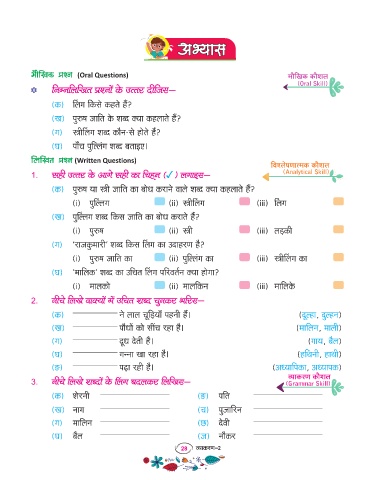 अभ्यास
मौखिक प्रश्न (Oral Questions)
मौखिक कौशल
(Oral Skill)
निम्नलिखित प्रश्नों के उत्तर दीजिए—
(क) लिंग किसे कहते हैं?
(ख) पुरुष जाति के शब्द क्या कहलाते हैं?
(ग) स्त्रीलिंग शब्द कौन-से होते हैं?
(घ) पाँच पुल्लिंग शब्द बताइए।
लिखित प्रश्न (Written Questions)
विश्लेषणात्मक कौशल
(Analytical Skill)
1. सही उत्तर के आगे सही का चिह्न (✓) लगाइए—
(क) पुरुष या स्त्री जाति का बोध कराने वाले शब्द क्या कहलाते हैं?
(i) पुल्लिंग (ii) स्त्रीलिंग (iii) लिंग
(ख) पुल्लिंग शब्द किस जाति का बोध कराते हैं?
(i) पुरुष (ii) स्त्री (iii) लड़की
(ग) 'राजकुमारी' शब्द किस लिंग का उदाहरण है?
(i) पुरुष जाति का (ii) पुल्लिंग का (iii) स्त्रीलिंग का
(घ) 'मालिक' शब्द का उचित लिंग परिवर्तन क्या होगा?
(i) मालको (ii) मालकिन (iii) मालिके
2. नीचे लिखे वाक्यों में उचित शब्द चुनकर भरिए—
(क) ने लाल चूड़ियाँ पहनी हैं। (दूल्हा, दुल्हन)
(ख) पौधों को सींच रहा है। (मालिन, माली)
(ग) दूध देती है। (गाय, बैल)
(घ) गन्ना खा रहा है। (हथिनी, हाथी)
(ङ) पढ़ा रही हैं। (अध्यापिका, अध्यापक)
व्याकरण कौशल
(Grammar Skill)
3. नीचे लिखे शब्दों के लिंग बदलकर लिखिए—
(क) शेरनी (ङ) पति
(ख) नाग (च) पुजारिन
(ग) मालिन (छ) देवी
(घ) बैल (ज) नौकर
28 व्याकरण-2